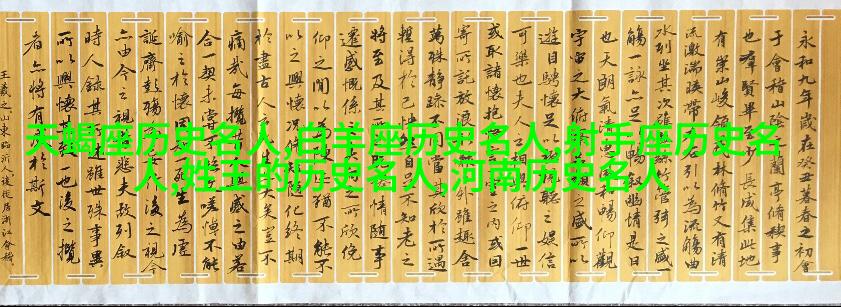 天蝎座历史名人,白羊座历史名人,射手座历史名
人,姓王的历史名人,河南历史名人
永和九年歲在癸丑暮春之初會
于會稽山陰之蘭亭脩稧事
也群賢畢至少長咸集此地
有崇山峻領茂林脩竹又有清
流激湍暎帶左右引以為流觴曲
水列坐其次雖無絲竹管弦之盛一
觴一詠亦足以暢敘幽情是日
也天朗氣清惠風和暢仰觀
宇宙之大俯察品類之盛所以
遊目騁懷足以極視聽之娛信
可樂也夫人之相與俯仰一世
或取諸懷抱悟言一室之內或因
寄所託放浪形骸之外雖趣舍
萬殊靜躁不同當其欣於所遇
暫得於己快然自足不知老之
將至及其所之既惓情隨事
遷感慨係之矣向之所欣俛
仰之間以為陳迹猶不能不
以之興懷況脩短隨化終期
於盡古人云死生亦大矣豈不
痛哉每攬昔人興感之由若
合一契未嘗不臨文嗟悼不能
喻之於懷固知死生為虛
誕齊彭殤為妄作後之視今
亦由今之視昔悲夫故列敘
時人錄其所述雖世殊事異
所以興懷其致一也後之攬
者亦將有感於斯文
王羲之山東臨沂人後徙居浙江會稽